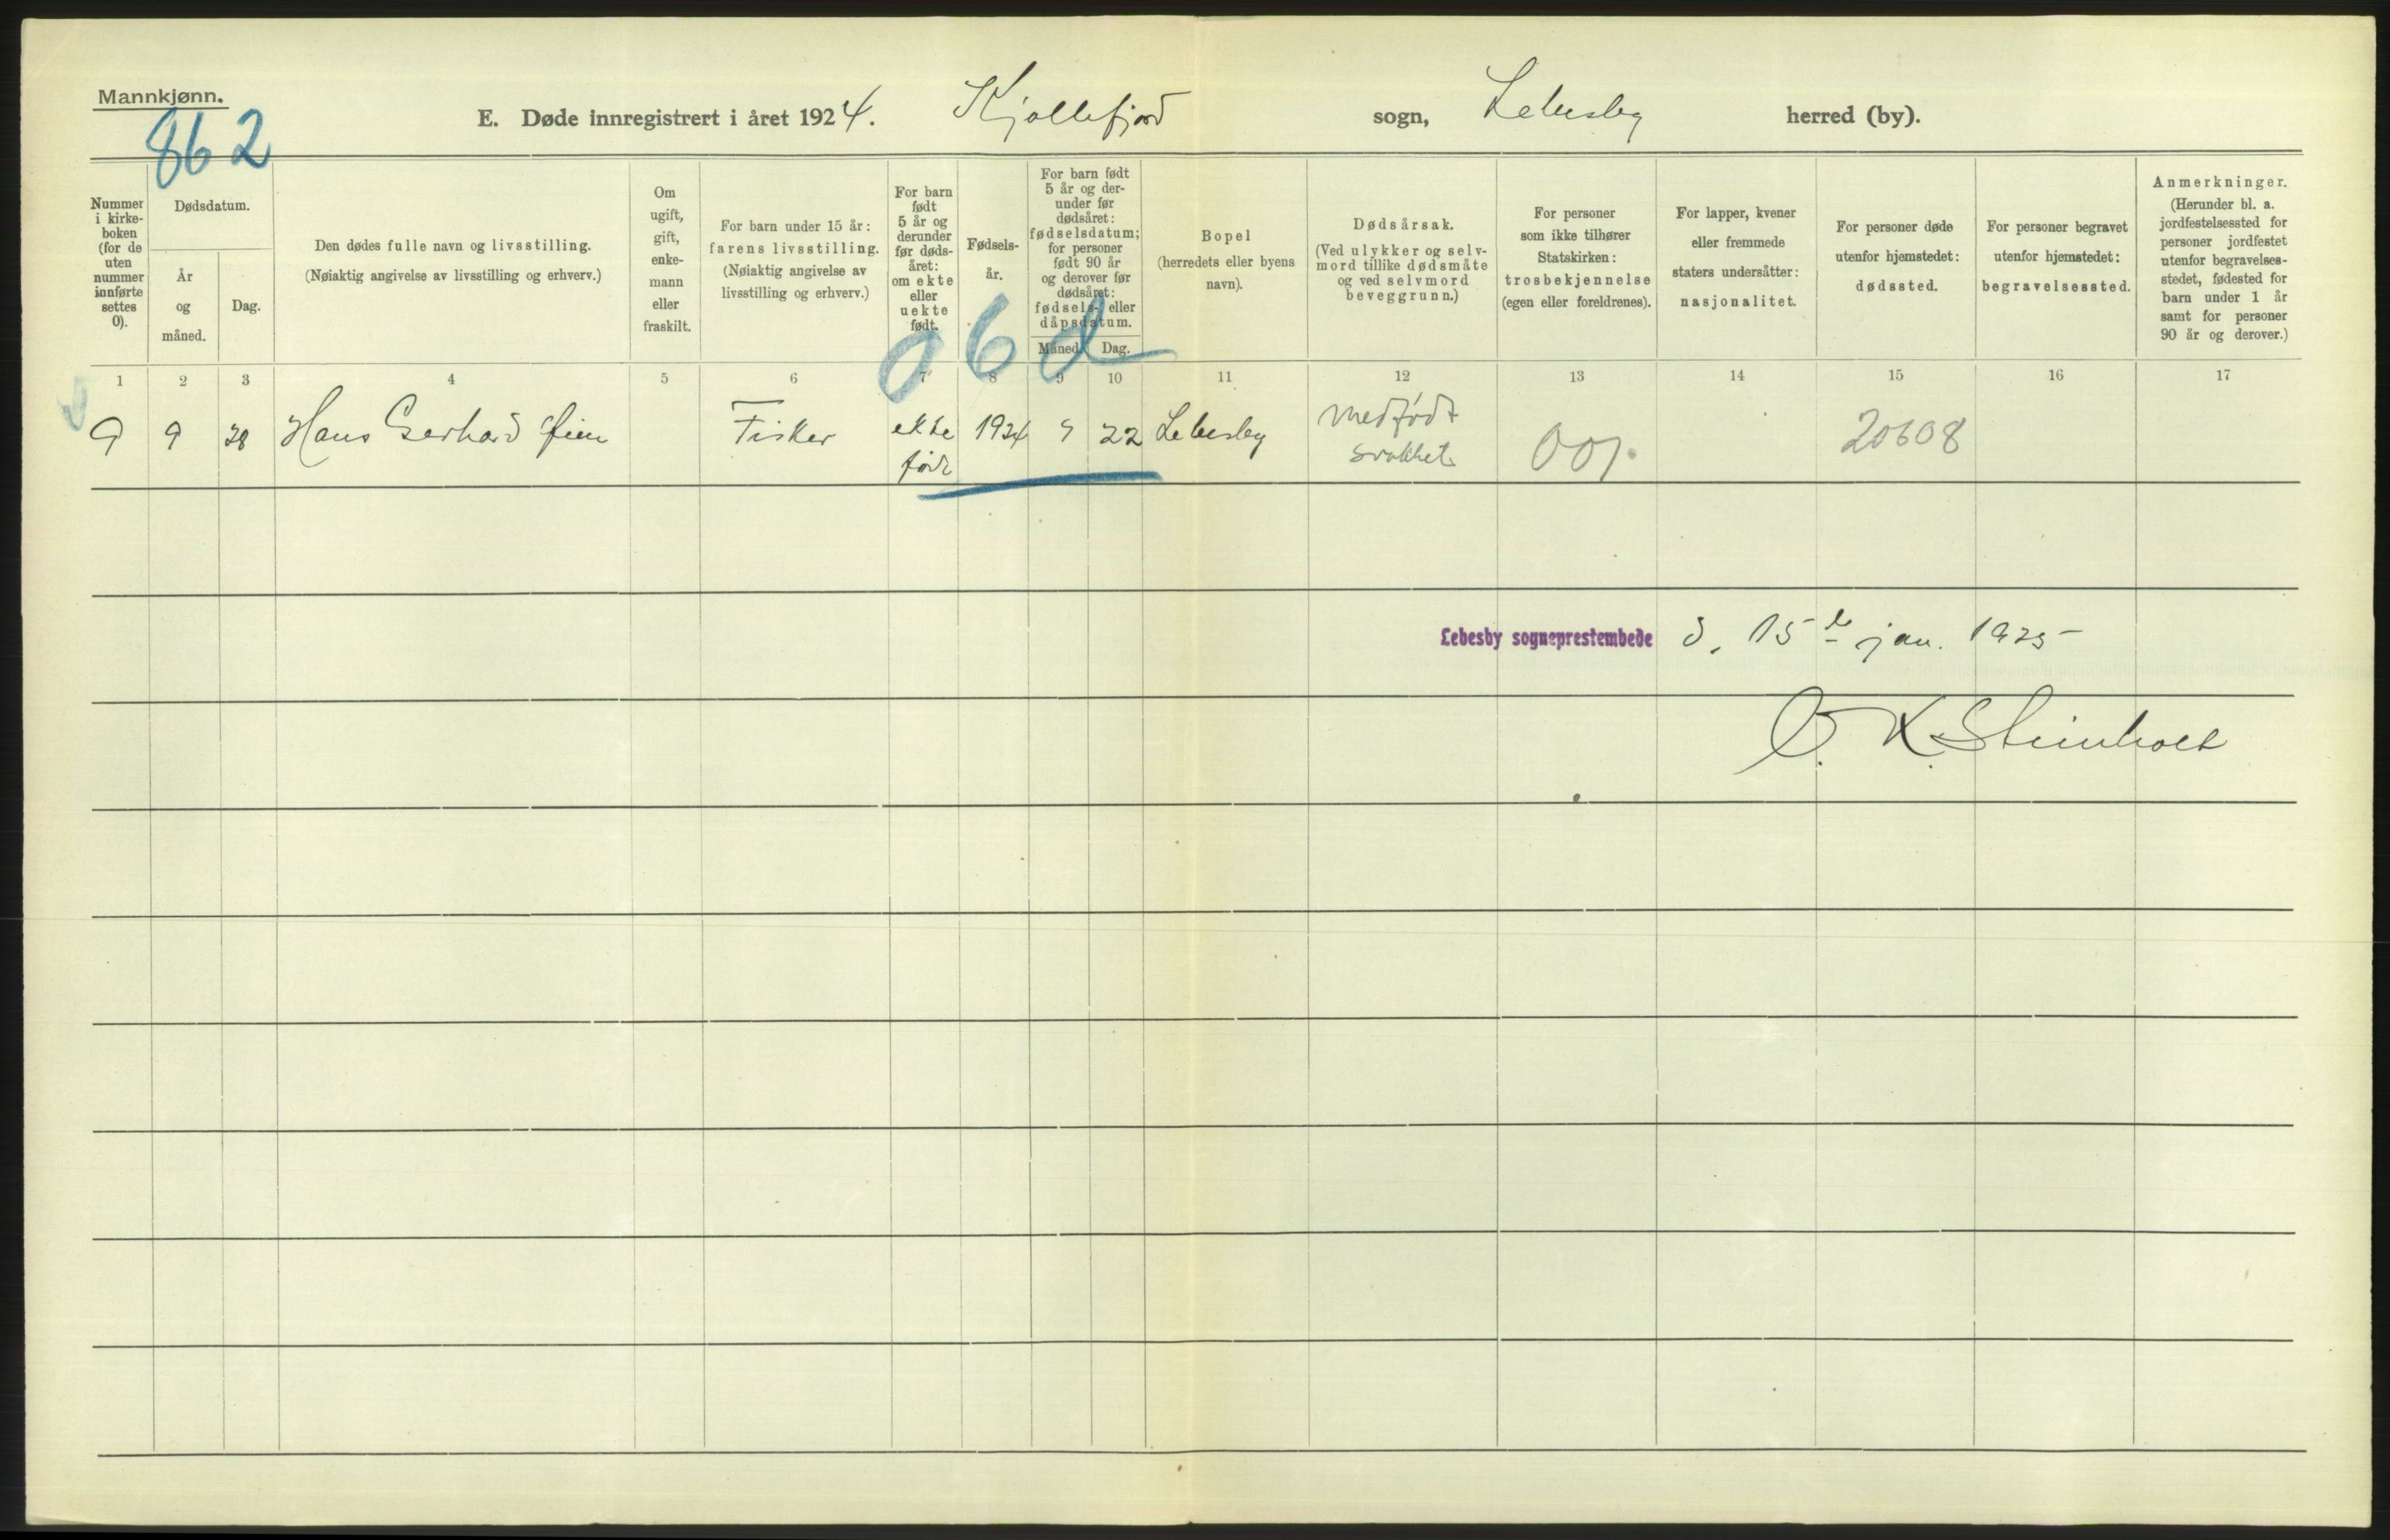 Mannkjønn.
862
E. Døde innregistrert i året 1924. Kjøllefjord sogn, Lebesby herred (by).
Nummer i kirke-boken (for de uten nummer innførte settes 0).
Dødsdatum.
År og måned.
Dag.
Den dødes fulle navn og livsstilling.
(Nøiaktig angivelse av livsstilling og erhverv.)
Om ugift, gift, enke-mann eller fraskilt.
For barn under 15 år: farens livsstilling.
(Nøiaktig angivelse av livsstilling og erhverv.)
For barn født 5 år og derunder før døds-året: om ekte eller uekte født.
Fødsels-år.
For barn født 5 år og der-under før dødsåret: fødselsdatum; for personer født 90 år og derover før dødsåret: fødsels- eller dåpsdatum.
Måned. Dag.
Bopel
(herredets eller byens navn).
Dødsårsak.
(Ved ulykker og selv-mord tillike dødsmåte og ved selvmord beveggrunn.)
For personer som ikke tilhører Statskirken: trosbekjennelse (egen eller foreldrenes).
For lapper, kvener eller fremmede staters undersåtter: nasjonalitet.
For personer døde utenfor hjemstedet: dødssted.
For personer begravet utenfor hjemstedet: begravelsessted.
Anmerkninger.
(Herunder bl. a. jordfestelsessted for personer jordfestet utenfor begravelses-stedet, fødested for barn under 1 år samt for personer 90 år og derover.)
06d
1 2 3 4 5 6 7 8 9 10 11 12 13 14 15 16 17
9 9 28 Hans Gerhard Fisker ekte født 1924 9 22 Lebesby medfødt svakhet 001. 20608
Lebesby sogneprestembede d. 15de jan. 1925
O. K. Steinholt